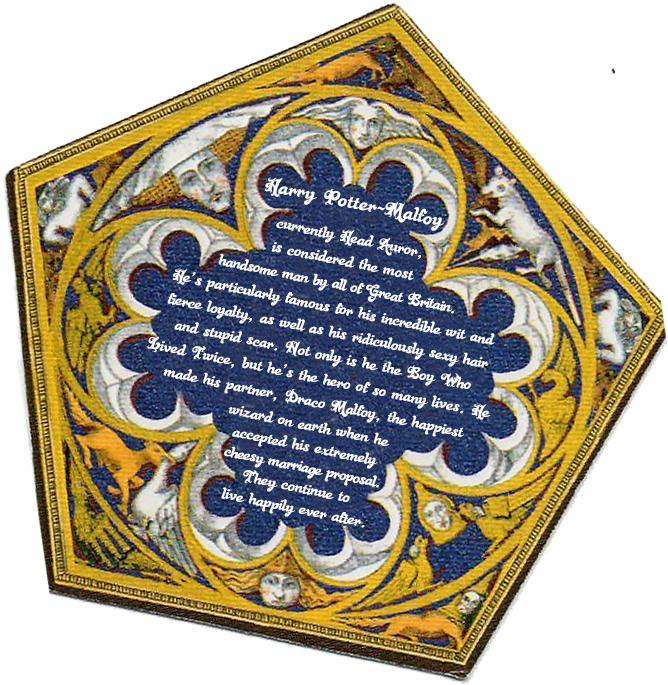 Harry Potter-Malfoy
currently Head Auror,
is considered the most
handsome man by all of Great Britain.
He's particularly famous for his incredible wit and
fierce loyalty, as well as his ridiculously sexy hair
and stupid scar. Not only is he the Boy Who
Lived Twice, but he's the hero of so many lives. He
made his partner, Draco Malfoy, the happiest
wizard on earth when he
accepted his extremely
cheesy marriage proposal.
They continue to
live happily ever after.